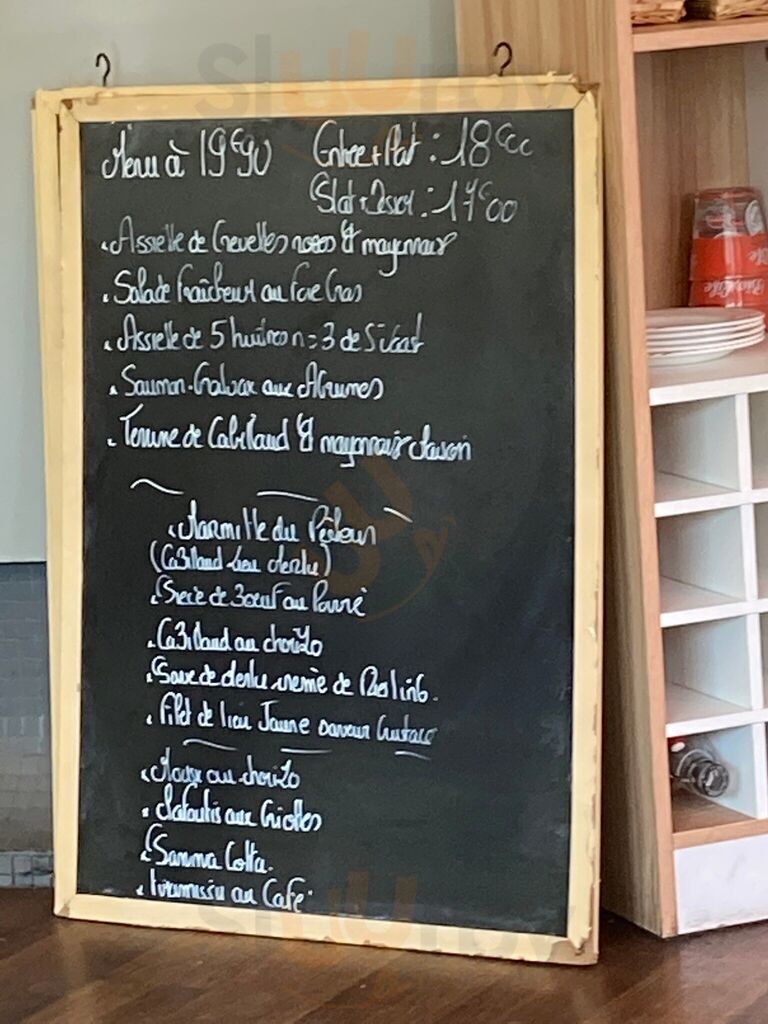 Menu à 19€90
Entrée + Plat : 18€
Plat + Dessert : 17€00
Assiette de Crevettes roses & mayonnaise
Salade Fraîcheur au Foie Gras
Assiette de 5 huîtres n=3 de
Saumon Gravlax aux Agrumes
Terrine de Cabillaud & mayonnaise
Marmitte du Pêcheur
(Cabillaud Lieu Merlu)
Pièce de Boeuf au Poivre
Cabillaud au chorizo
de Merlu crème de Riesling.
Filet de lieu Jaune saveur Crustacé
au chorizo
Clafoutis aux Griottes
Panna Cotta.
Tiramissu au Café
SluUrpy